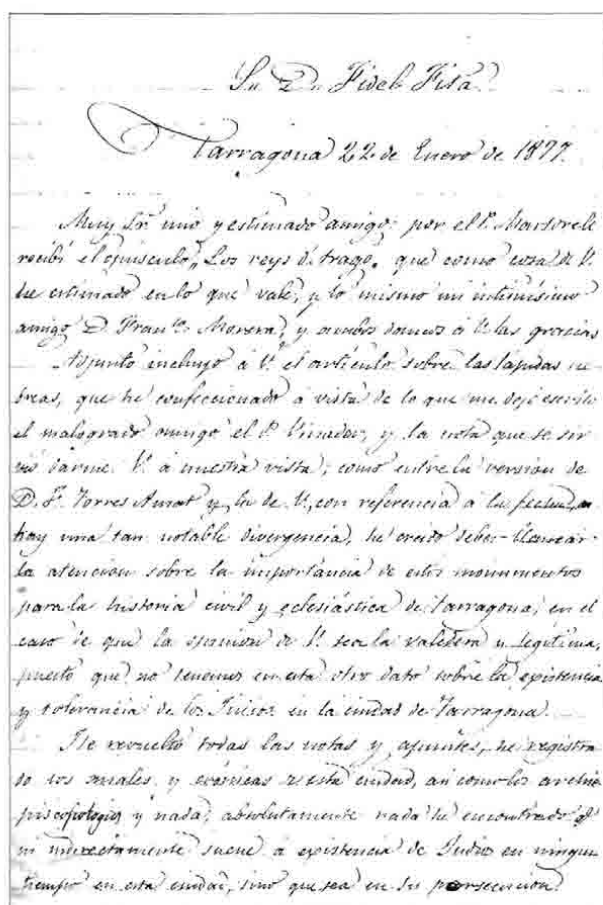 Sr. Dn. Fidel Fita
Tarragona 22 de Enero de 1877.
Muy Sr. mio y estimado amigo: por el P. Martorell
recibí el opúsculo, Los reys d. frago, que como cosa de V.
he estimado en lo que vale, y lo mismo mi intimísimo
amigo D. Franco. Morera, y ambos damos á V. las gracias
Adjunto incluyo á V. el artículo sobre las lápidas he
breas, que hé confeccionado á vista de lo que me dejó escrito
el malogrado amigo el P. Vinader, y la nota que se sir
vió darme V. á nuestra vista; como entre la version de
D. F. Torres Amat y la de V., con referencia á la fecha,
hay una tan notable divergencia, he creido deber llamar
la atencion sobre la importáncia de estos monumentos
para la história civil y eclesiástica de Tarragona, en el
caso de que la opinion de V. sea la valedera y legitima,
puesto que no tenemos en esta otro dato sobre la existencia
y tolerancia de los Judios en la ciudad de Tarragona.
He revuelto todas las notas y apuntes, he registra
do los anales y crónicas de esta ciudad, asi como los archie
piscopologios y nada, absolutamente nada he encontrado qe.
ni indirectamente suene á existencia de Judios en ningun
tiempo en esta ciudad, sino que sea en su persecucion